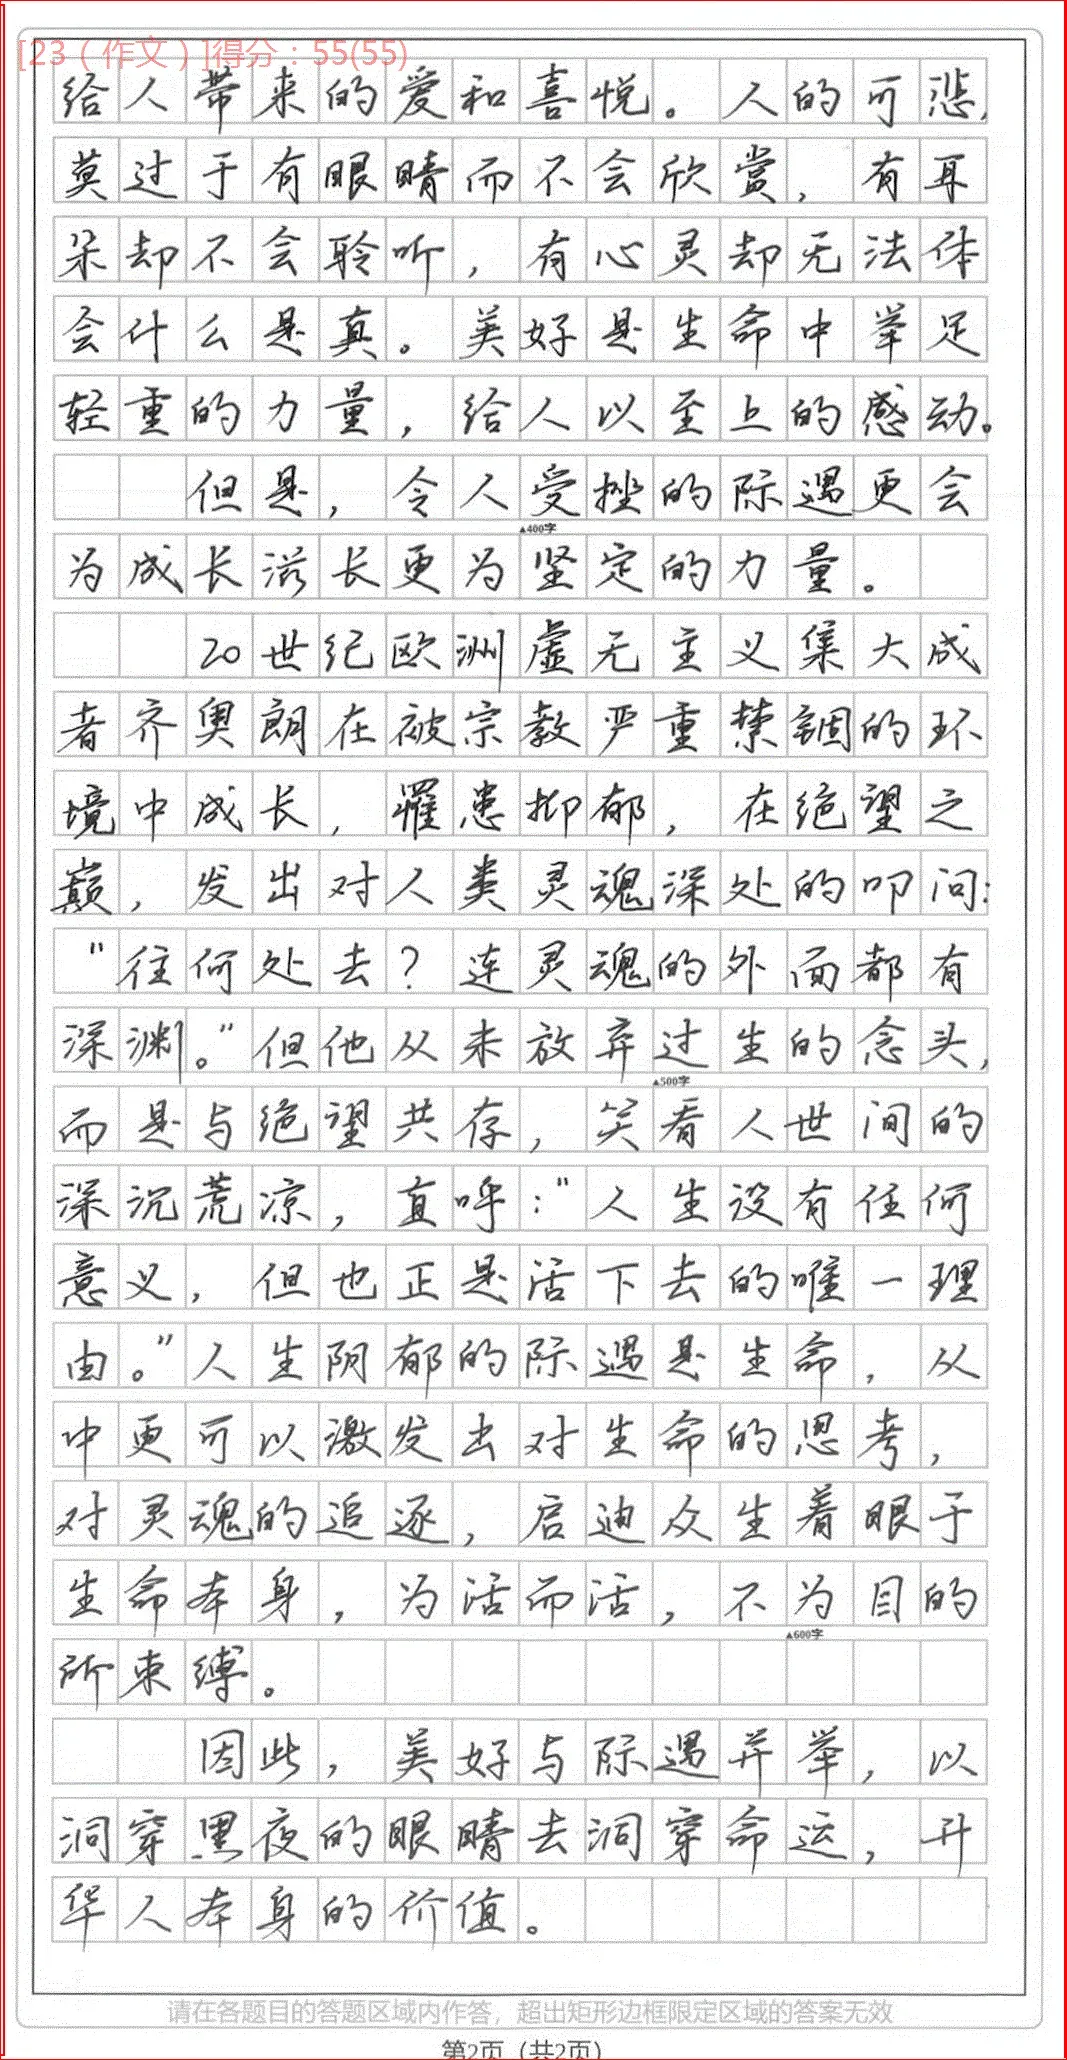 [23（作文）]得分：55(55)
给人带来的爱和喜悦。人的可悲，
莫过于有眼睛而不会欣赏，有耳
朵却不会聆听，有心灵却无法体
会什么是真。美好是生命中举足
轻重的力量，给人以至上的感动。
但是，令人受挫的际遇更会
▲400字
为成长滋长更为坚定的力量。
20世纪欧洲虚无主义集大成
者齐奥朗在被宗教严重禁锢的环
境中成长，罹患抑郁，在绝望之
巅，发出对人类灵魂深处的叩问：
“往何处去？连灵魂的外面都有
深渊。”但他从未放弃过生的念头，
▲500字
而是与绝望共存，笑看人世间的
深沉荒凉，直呼：“人生没有任何
意义，但也正是活下去的唯一理
由。”人生阴郁的际遇是生命，从
中更可以激发出对生命的思考，
对灵魂的追逐，启迪众生着眼于
生命本身，为活而活，不为目的
▲600字
所束缚。
因此，美好与际遇并举，以
洞穿黑夜的眼睛去洞穿命运，升
华人本身的价值。
请在各题目的答题区域内作答，超出矩形边框限定区域的答案无效
第2页（共2页）